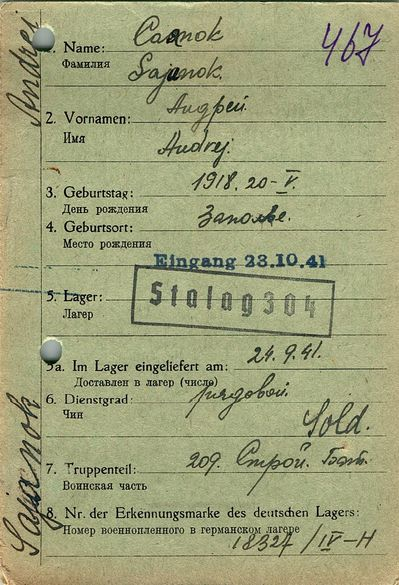 Andrej
467
1. Name: Саянок
Фамилия
Sajanok.
2. Vornamen: Андрей.
Имя
Andrej.
3. Geburtstag: 1918. 20-V.
День рождения
4. Geburtsort: Заполье.
Место рождения
Eingang 23.10.41
5. Lager: Stalag 304
Лагер
5a. Im Lager eingeliefert am: 24.9.41.
Доставлен в лагер (число)
6. Dienstgrad: рядовой.
Чин
Sold.
7. Truppenteil: 209. Строй. Бат.
Воинская часть
8. Nr. der Erkennungsmarke des deutschen Lagers:
Номер военнопленного в германском лагере
18327/IV-H
Sajanok